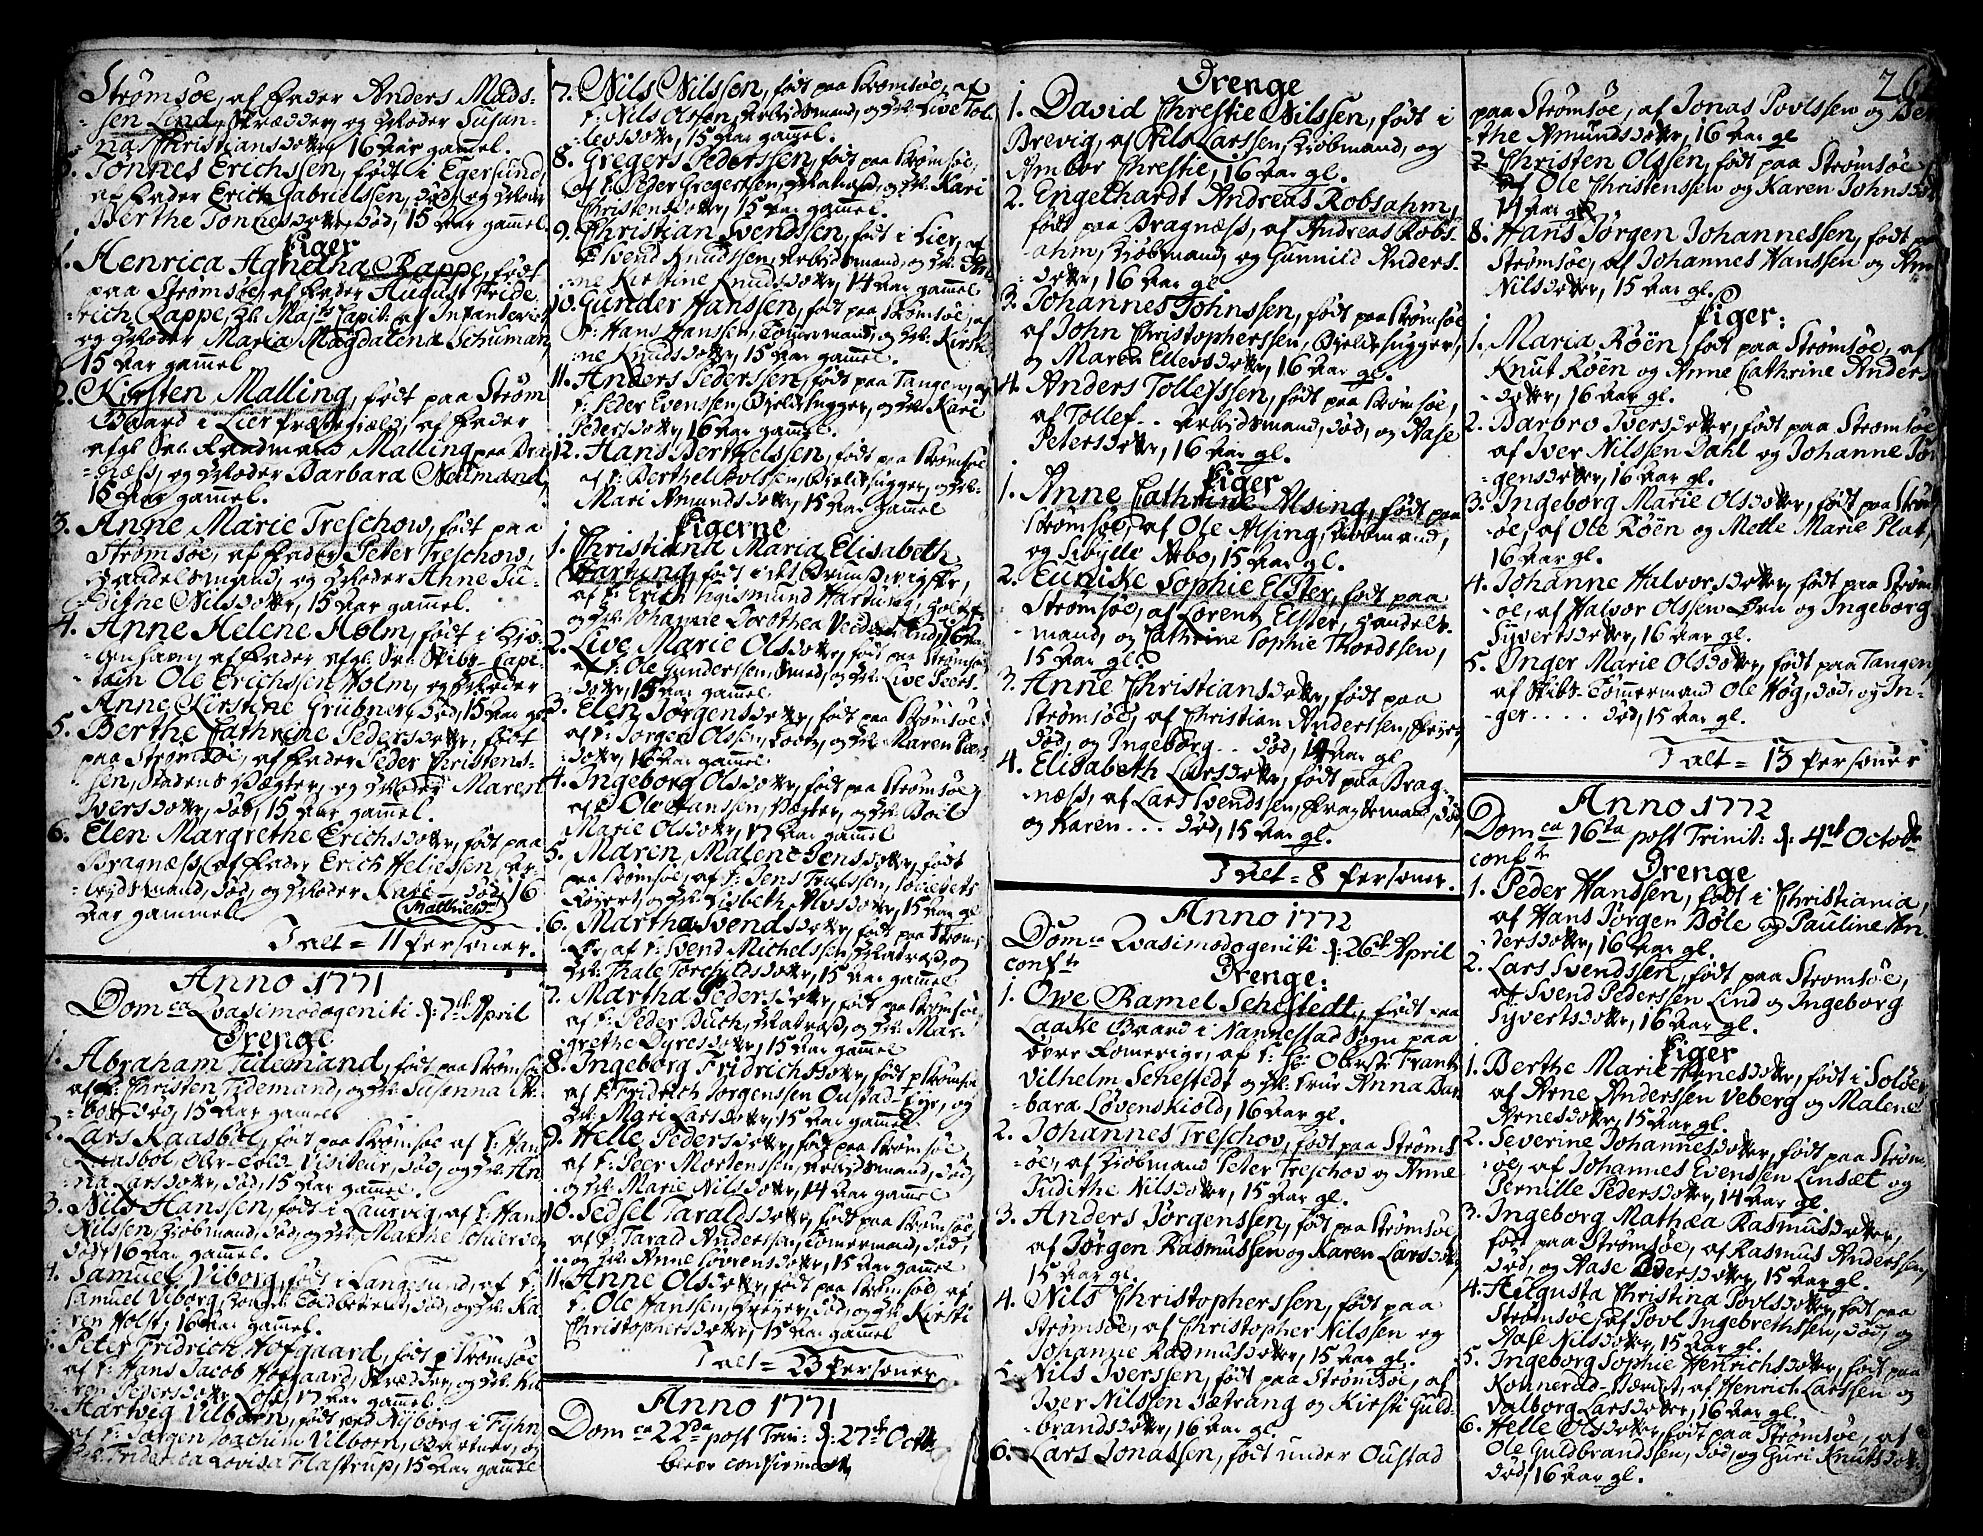 Strømsøe, af Fader Anders Mads-
-sen Lind, Skrædder, og Moder Susan-
-na Christiansdotter, 16 Aar gammel.
5. Tønnes Erichssen, født i Egersund,
af Fader Erich Gabrielssen, død, og Moder
Berthe Tønnesdotter, død, 15 Aar gammel
Piger
1. Henrica Agnetha Rappe, født
paa Strømsøe, af Fader August Fride
rich Rappe, Maj:ts Capit: af Infanteriet
og Moder Maria Magdalena Schuman,
15 Aar gammel
2. Kirsten Malling, født paa Strøm
Gaard i Lier Præstegield, af Fader
afgl. Sr. Raadmand Malling paa Bra-
-gnæss, og Moder Barbara Nellmand,
15 Aar gammel.
3. Anne Marie Treschow, født paa
Strømsøe, af Fader Peter Treschow,
Handelsmand, og Moder Anne Ju-
dithe Nilsdotter, 15 Aar gammel.
4. Anne Helene Holm, født i Kiø-
benhavn, af Fader afgl. Sr. Skibs-Capi-
-tain Ole Erichssen Holm, og Moder
Anne Kirstine Grübner, død, 15 Aar gl.
5. Berthe Cathrine Pedersdotter, født
paa Strømsøe, af Fader Peder Christens-
-sen, Stadens Vægter, og Moder Maren
Iversdotter, død, 15 Aar gammel.
6. Elen Margrethe Erichsdotter, født paa
Bragnæss, af Fader Erich Heljessen, Ar-
-beydsmand, død, og Moder Kari — død, 16
Mathiesd:
Aar gammel
I alt = 11 Personer.
Anno 1771
Dom:ca Qvasimodogeniti d: 7de April
Drenge
1. Abraham Tidemand, født paa Strømsøe
af F: Christen Tidemand, og M: Susanna
død, 15 Aar gammel
2. Lars Raasbøl, født paa Strømsøe af F: Hans
Raasbøl, Told-Visiteur, død, og M: An
na Larsdotter, død, 15 Aar gammel.
3. Nils Hanssen, født i Laurvig, af F: Hans
Nilssen, Kiøbmand, død, og M: Marthe
død, 16 Aar gammel.
4. Samuel Viborg, født i Langesund, af F:
Samuel Viborg, Toldbetient, død, og M: Ka
ren Holst, 16 Aar gammel.
5. Peter Fridrich Hofgaard, født p Strømsøe
af F: Hans Jacob Hofgaard, Skrædder, og M: Ka
ren Pedersdotter 17 Aar gammel.
6. Hartvig Vilborn, født ved Nyborg i Fyhn
af F: Jørgen Joachim Vilborn, Gartner, og
M: Friderica Lovisa Flastrup, 15 Aar gammel
7. Nils Nilssen, født paa Strømsøe, af
F: Nils Olssen, Arbeydsmand, og M: Live Tol
levsdotter, 15 Aar gammel.
8. Gregers Pederssen, født paa Strømsøe,
af F: Peder Gregerssen, Matros, og M: Kari
Christensdotter, 15 Aar gammel.
9. Christian Svendssen, født i Lier, af
F: Svend Knudssen, Arbeydsmand, og M: An
ne Kirstine Knudsdotter, 14 Aar gammel
10. Gunder Hanssen, født paa Strømsøe, af
F: Hans Hanssen, Tømermand, og M: Kirsti
ne Knudsdotter, 15 Aar gammel.
11. Anders Pederssen, født paa Tangen, af
F: Peder Evenssen, Bielkehugger, og M: Kari
Pedersdotter, 16 Aar gammel.
12. Hans Berthelssen, født paa Strømsøe
af F: Berthel Povlssen, Bielkehugger, og M:
Mari Amundsdotter, 15 Aar gammel
Pigerne
1. Christiana Maria Elisabeth
Hartung, født i det Brunsvigske,
af F: Erich Sigismund Hartung,
og M: Johanne Dorothea 16 Aar
2. Live Marie Olsdotter, født paa Strømsøe
af F: Ole Gunderssen, Smed, og M: Live Peers-
dotter, 15 Aar gammel
3. Elen Jørgensdotter, født paa Strømsøe,
af F: Jørgen Olssen, Loots, og M: Maren Peers
dotter, 16 Aar gammel.
4. Ingeborg Olsdotter, født paa Strømsøe,
af F: Ole Hanssen, Vægter, og M: Boil
Marie Olsdotter, 17 Aar gammel
5. Maren Malene Jensdotter, født
paa Strømsøe, af F: Jens Trulssen,
og M: Lisbeth 15 Aar gl
6. Martha Svendsdotter, født paa Strøms
øe, af F: Svend Michelssen, Matros, og
M: Thale Torchildsdotter, 15 Aar gammel
7. Martha Pedersdotter, født paa Strømsøe
af F: Peder Buch, Matros, og M: Mar-
grethe Dyresdotter, 15 Aar gammel
8. Ingeborg Fridrichsdotter, født p Strømsøe
af F: Fridrich Jørgenssen Oustad-Eye, og
M: Mari Larsdotter, 15 Aar gammel
9. Helle Pedersdotter, født paa Strømsøe
af F: Peer Mortenssen, Arbeydsmand, død,
og M: Marie Nilsdotter, 14 Aar gammel
10. Sedsel Taraldsdotter, født paa Strømsøe,
af F: Tarald Anderssen, Tømermand, død,
og M: Anne Sørensdotter, 15 Aar gammel
11. Anne Olsdotter, født paa Strømsøe, af
F: Ole Hanssen, død, og M: Kirsti
Christophersdotter, 15 Aar gammel
I alt = 23 Personer
Anno 1771
Dom:ca 22da post Trin: d: 27de Octbr
bleve confirmeret
Drenge
1. David Chrestie Nilssen, født i
Brevig, af Nils Larssen, Kiøbmand, og
Amber Chrestie, 16 Aar gl.
2. Engelhardt Andreas Robsahm,
født paa Bragnæss, af Andreas Robs-
ahm, Kiøbmand, og Gunnild Anders-
-dotter, 16 Aar gl.
3. Johannes Johnssen, født paa Strømsøe
af John Christopherssen, Bielkehugger,
og Maren Ellevsdotter, 16 Aar gl.
4. Anders Tollefssen, født paa Strømsøe,
af Tollef... Arbeydsmand, død, og Aase
Petersdotter, 16 Aar gl.
Piger
1. Anne Cathrine Alsing, født paa
Strømsøe, af Ole Alsing, Kiøbmand,
og Sibylle Abo, 15 Aar gl.
2. Eunike Sophie Elster, født paa
Strømsøe, af Lorentz Elster, Handels-
-mand, og Cathrine Sophie Thordtsen,
15 Aar gl.
3. Anne Christiansdotter, født paa
Strømsøe, af Christian Anderssen,
død, og Ingeborg... død, 14 Aar gl
4. Elisabeth Larsdotter, født paa Brag-
-næss, af Lars Svendssen, Fragtemand, død,
og Karen... død, 15 Aar gl.
I Alt = 8 Personer.
Anno 1772
Dom:ca Qvasimodogeniti d: 26de April
conf:te
Drenge:
1. Owe Ramel Sehestedt, født paa
Laake Gaard i Nannestad Sogn paa
øvre Romerige, af F: Hr: Oberste Frantz
Vilhelm Sehestedt og M: Frue Anna Bar
-bara Løvenskiold, 16 Aar gl.
2. Johannes Treschov, født paa Strøms
-øe, af Kiøbmand Peter Treschov og Anne
Judithe Nilsdotter, 15 Aar gl.
3. Anders Jørgenssen, født paa Strømsøe
af Jørgen Rasmussen og Karen Larsdotter,
15 Aar gl.
4. Nils Christopherssen, født paa
Strømsøe, af Christopher Nilssen og
Johanne Rasmusdotter, 15 Aar gl.
5. Nils Iverssen, født paa Strømsøe, af
Iver Nilssen Sætrang og Kirsti Guld-
-brandsdotter, 16 Aar gl.
6. Lars Jonassen, født under Oustad
26
paa Strømsøe, af Jonas Povlssen og Ber
-the Amundsdotter, 16 Aar gl
7. Christen Olssen, født paa Strømsøe
af Ole Christenssen og Karen Johnsdotter
14 Aar gl.
8. Hans Jørgen Johannessen, født paa
Strømsøe, af Johannes Hanssen og Anne
Nilsdotter, 15 Aar gl.
Piger:
1. Maria Røen, født paa Strømsøe, af
Knut Røen og Anne Cathrine Anders
-dotter, 16 Aar gl.
2. Barbro Iversdotter, født paa Strømsøe
af Iver Nilssen Dahl og Johanne Jør
-gensdotter, 16 Aar gl.
3. Ingeborg Marie Olsdotter, født paa Strøms
-øe, af Ole Røen og Mette Marie Plat,
16 Aar gl.
4. Johanne Halvorsdotter, født paa Strøms
-øe, af Halvor Olssen Øen og Ingeborg
Syvertsdotter, 16 Aar gl.
5. Inger Marie Olsdotter, født paa Tangen,
af Skibs-Tømmermand Ole Høg, død, og In-
-ger.... død, 15 Aar gl.
I alt = 13 Personer
Anno 1772
Dom:ca 16ta post Trinit: d: 4de Octobr
conf:te
Drenge
1. Peder Hanssen, født i Christiania,
af Hans Jørgen Bøle og Pauline An-
dersdotter, 16 Aar gl.
2. Lars Svendssen, født paa Strømsøe,
af Svend Pederssen Lind og Ingeborg
Syvertsdotter, 16 Aar gl.
Piger
1. Berthe Marie Arnesdotter, født i Soløer
af Arne Anderssen Veberg og Malene
Arnesdotter, 15 Aar gl.
2. Severine Johannesdotter, født paa Strøms
-øe, af Johannes Evenssen Linsæt og
Pernille Pedersdotter, 14 Aar gl.
3. Ingeborg Mathæa Rasmusdotter,
født paa Strømsøe, af Rasmus Anderssen,
død, og Aase Pedersdotter, 15 Aar gl.
4. Augusta Christina Povlsdotter, født paa
Strømsøe, af Povl Ingebrethssen, død, og
Aase Nilsdotter, 15 Aar gl.
5. Ingeborg Sophie Henrichsdotter, født paa
Konnerud-Værket, af Henrich Larssen og
Valborg Larsdotter, 16 Aar gl.
6. Helle Olsdotter, født paa Strømsøe, af
Ole Guldbrandssen, død, og Guri Knutsdotter,
død, 16 Aar gl.